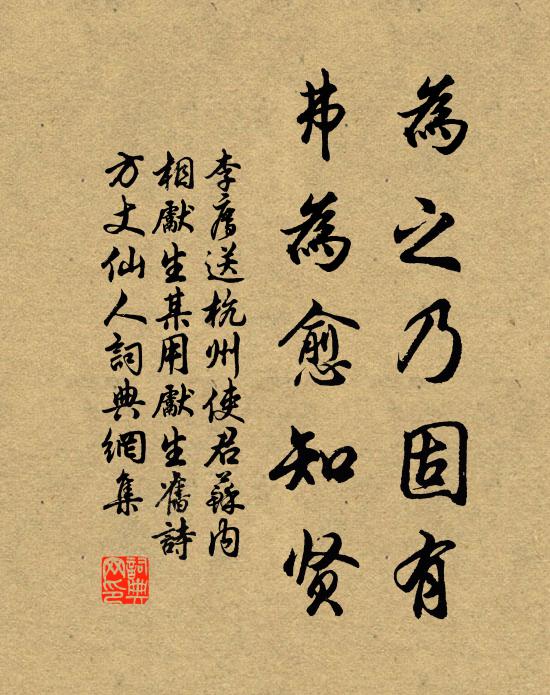 為之乃固有
弗為愈知贤
李廌送杭州使君蘇内
相獻生某用獻生舊詩
方丈仙人詞典網集
詞典
网印